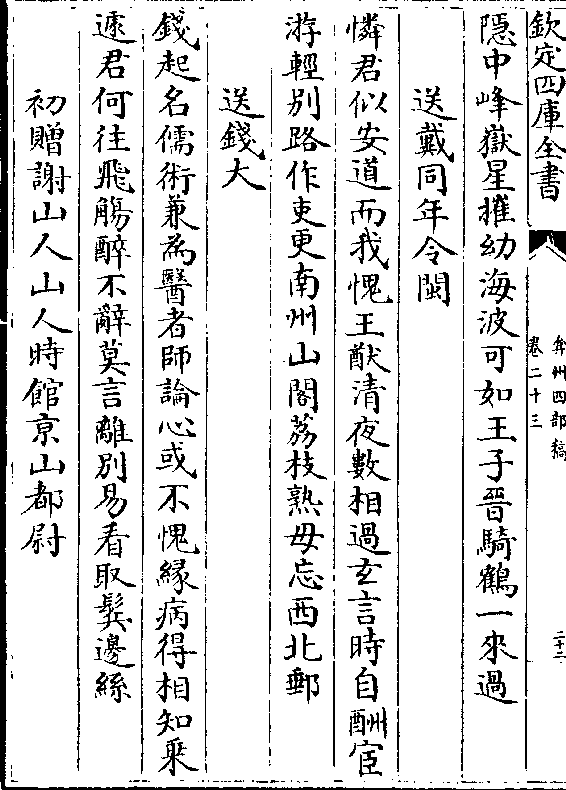 欽定四庫全書
弇州四部稿
卷二十三
二十二
隠中峰嶽星摧幼海波可如王子晉騎鶴一來過
送戴同年令閩
憐君似安道而我愧王猷清夜數相過玄言時自酬宦
游輕别路作吏更南州山閣荔枝熟毋忘西北郵
送錢大
錢起名儒術兼為醫者師論心或不愧縁病得相知乗
遽君何往飛觴醉不辭莫言離別易看取鬂邊絲
初贈謝山人山人時館京山都尉